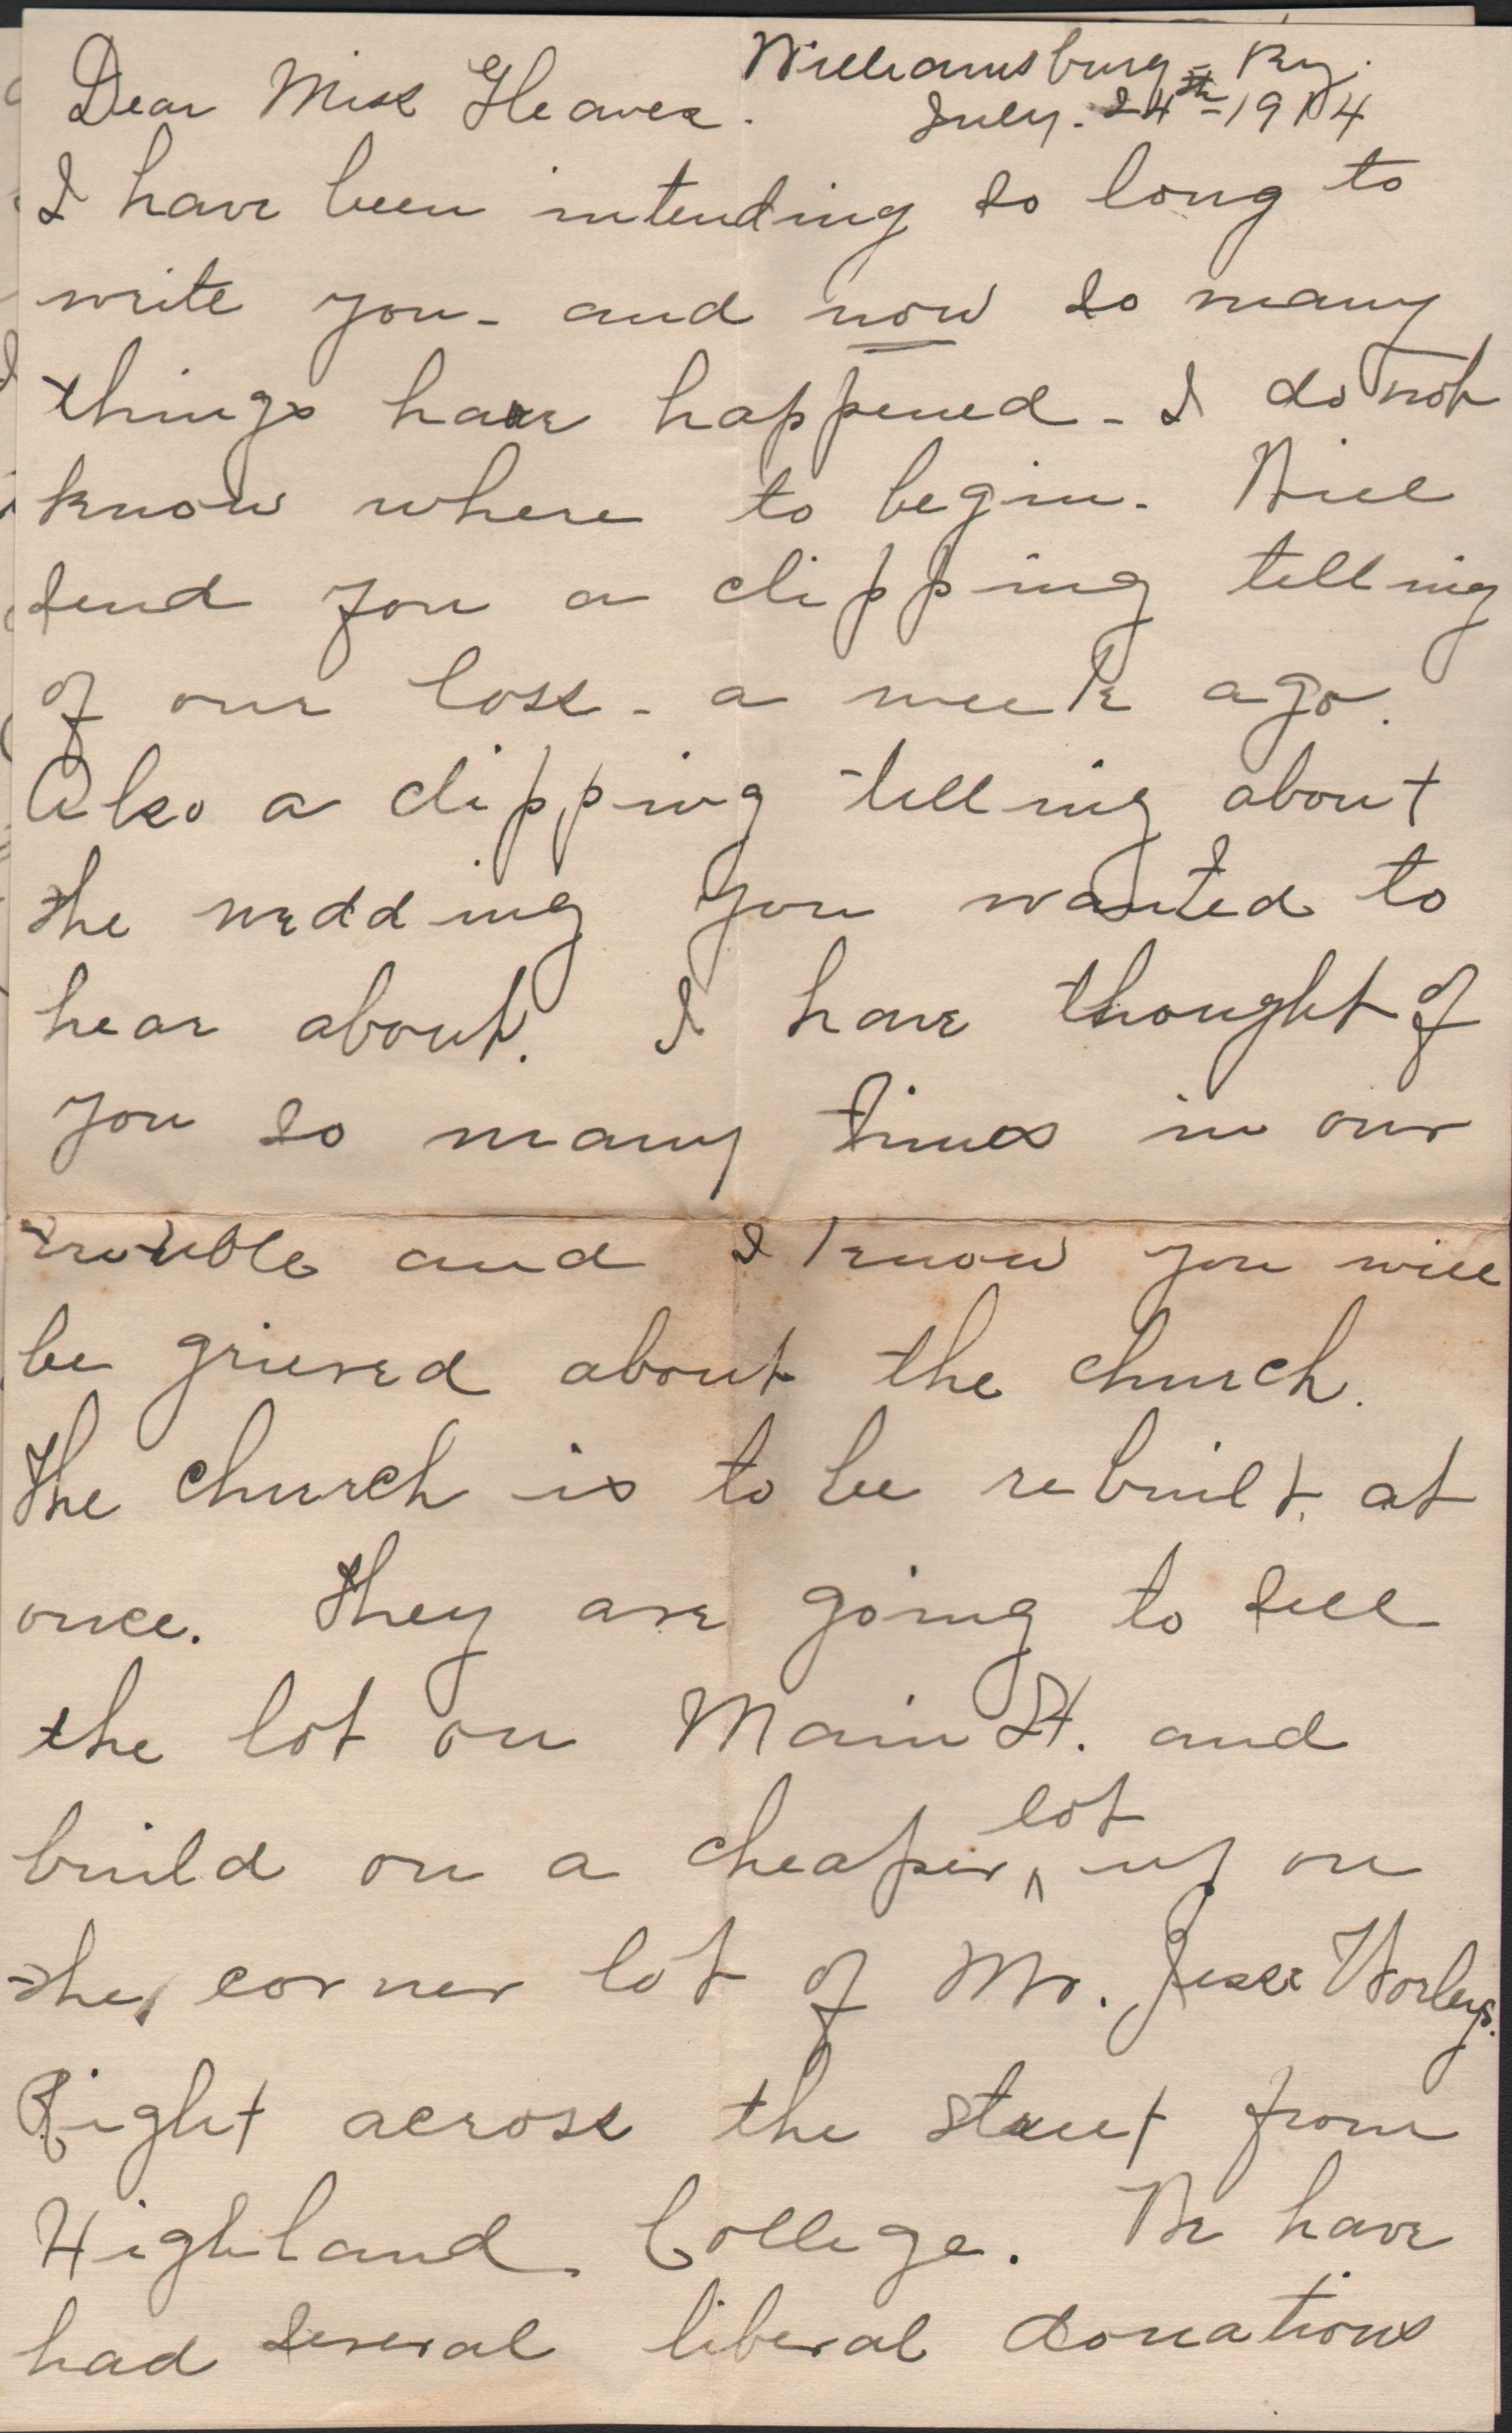 Williamsburg - Ky.
Dear Miss Heaves. July. 24th - 1914
I have been intending so long to
write you - and now so many
things have happened - I do not
know where to begin. Will
send you a clipping telling
of our loss - a week ago.
Also a clipping telling about
the wedding you wanted to
hear about. I have thought of
you so many times in our
trouble and I know you will
be grieved about the church.
The church is to be rebuilt at
once. They are going to sell
the lot on Main St. and
build on a cheaper ^ lot up on
the corner lot of Mr. Jesse Worleys.
Right across the street from
Highland College. We have
had several liberal donations